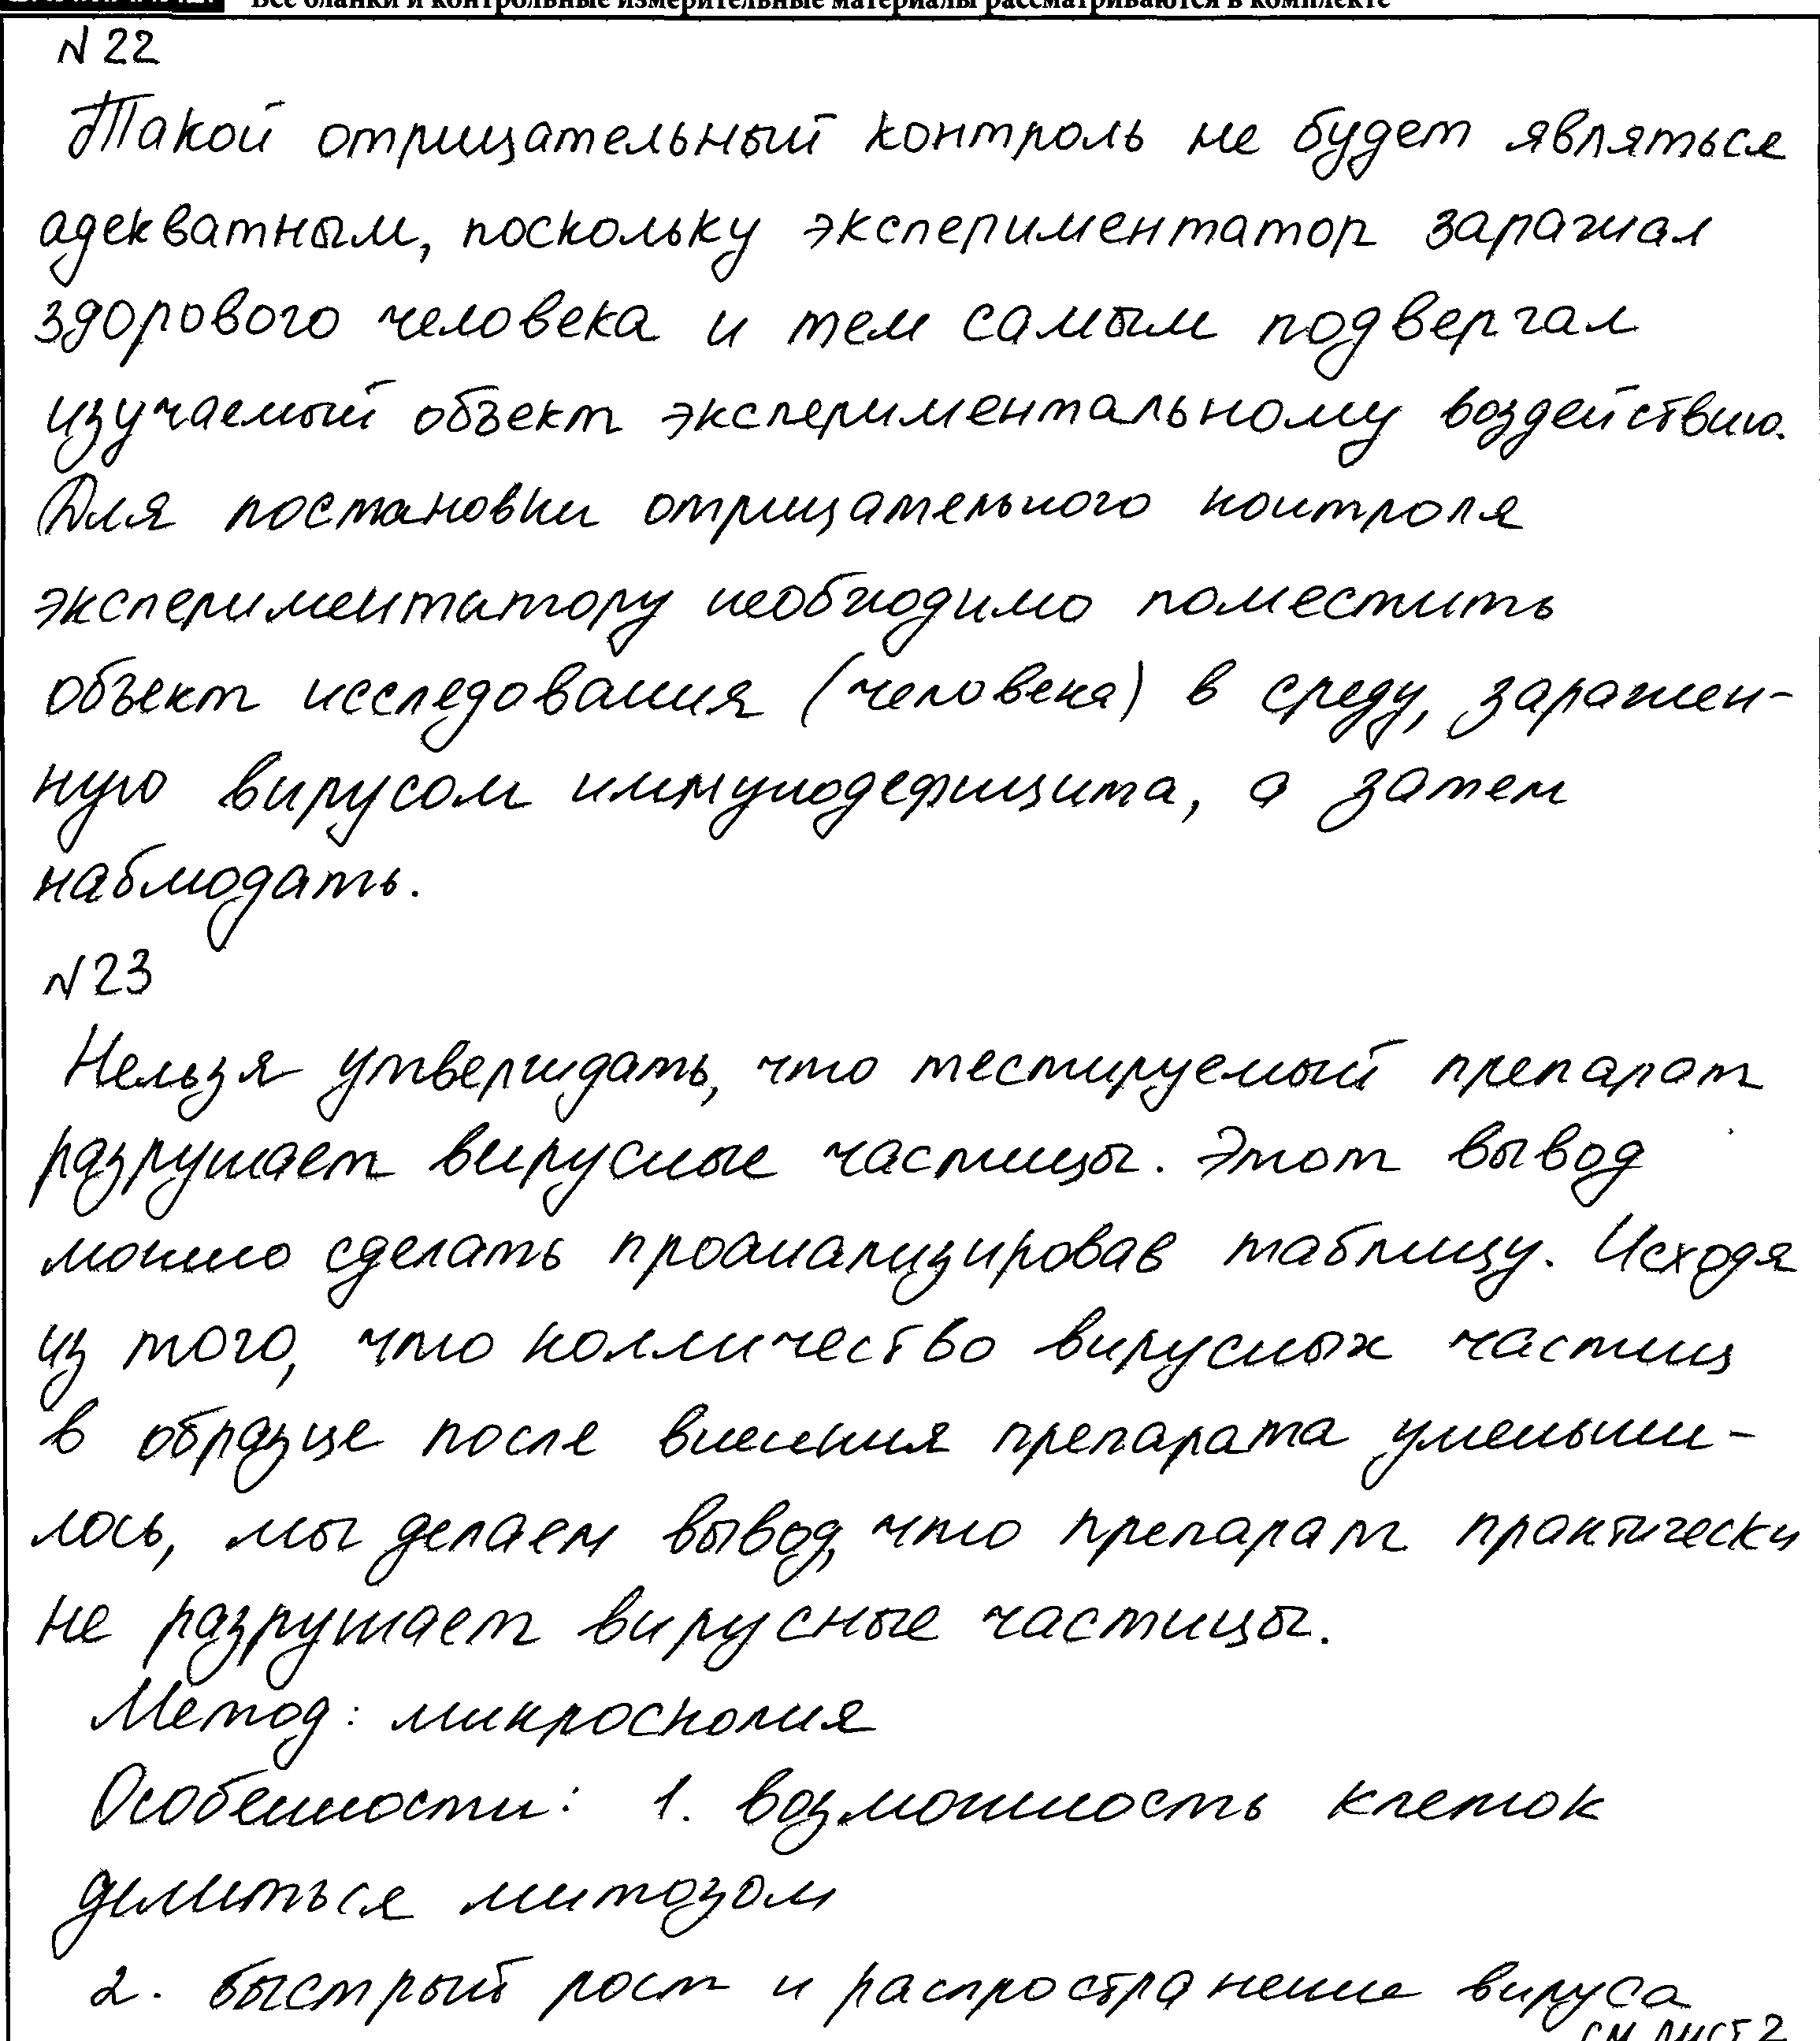 Все бланки и контрольные измерительные материалы рассматриваются в комплекте
№ 22
Такой отрицательный контроль не будет являться
адекватным, поскольку экспериментатор заражал
здорового человека и тем самым подвергал
изучаемый объект экспериментальному воздействию.
Для постановки отрицательного контроля
экспериментатору необходимо поместить
объект исследования (человека) в среду, заражен-
ную вирусом иммунодефицита, а затем
наблюдать.
№ 23
Нельзя утверждать, что тестируемый препарат
разрушает вирусные частицы. Этот вывод
можно сделать проанализировав таблицу. Исходя
из того, что колличество вирусных частиц
в образце после внесния препарата уменьши-
лось, мы делаем вывод, что препарат практически
не разрушает вирусные частицы.
Метод: микроскопия
Особенности: 1. возможность клеток
делиться митозом
2. быстрый рост и распространение вируса
см лист 2